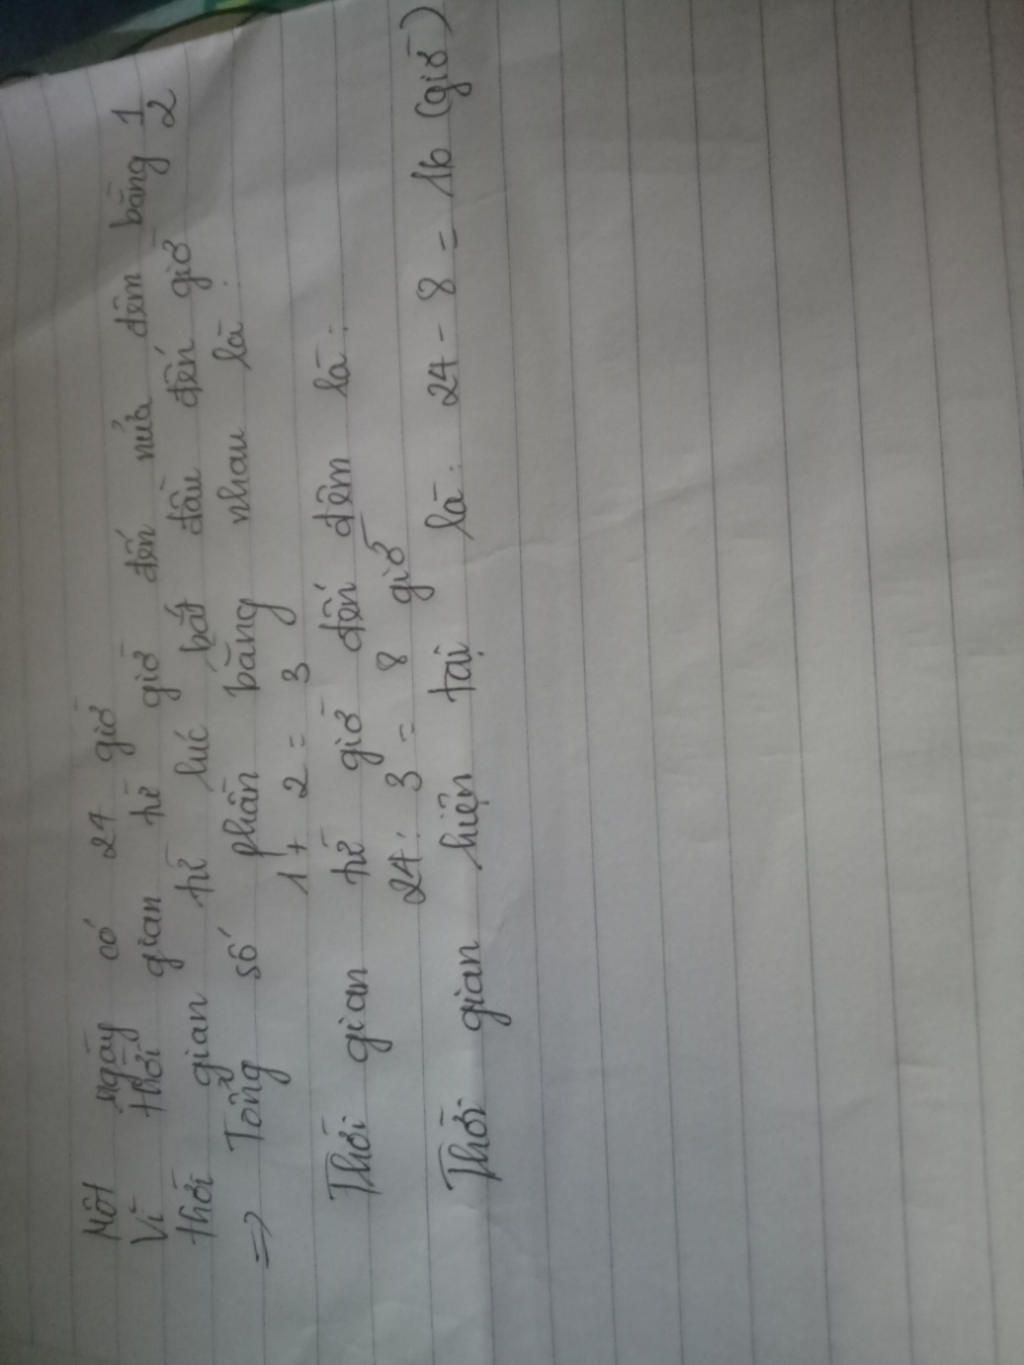 Một ngày có 24 giờ
Vì thời gian từ giờ đến nửa đêm bằng 1/2
thời gian từ lúc bắt đầu đến giờ
=> Tổng số phần bằng nhau là:
1 + 2 = 3
Thời gian từ giờ đến đêm là:
24 : 3 = 8 giờ
Thời gian hiện tại là: 24 - 8 = 16 (giờ)